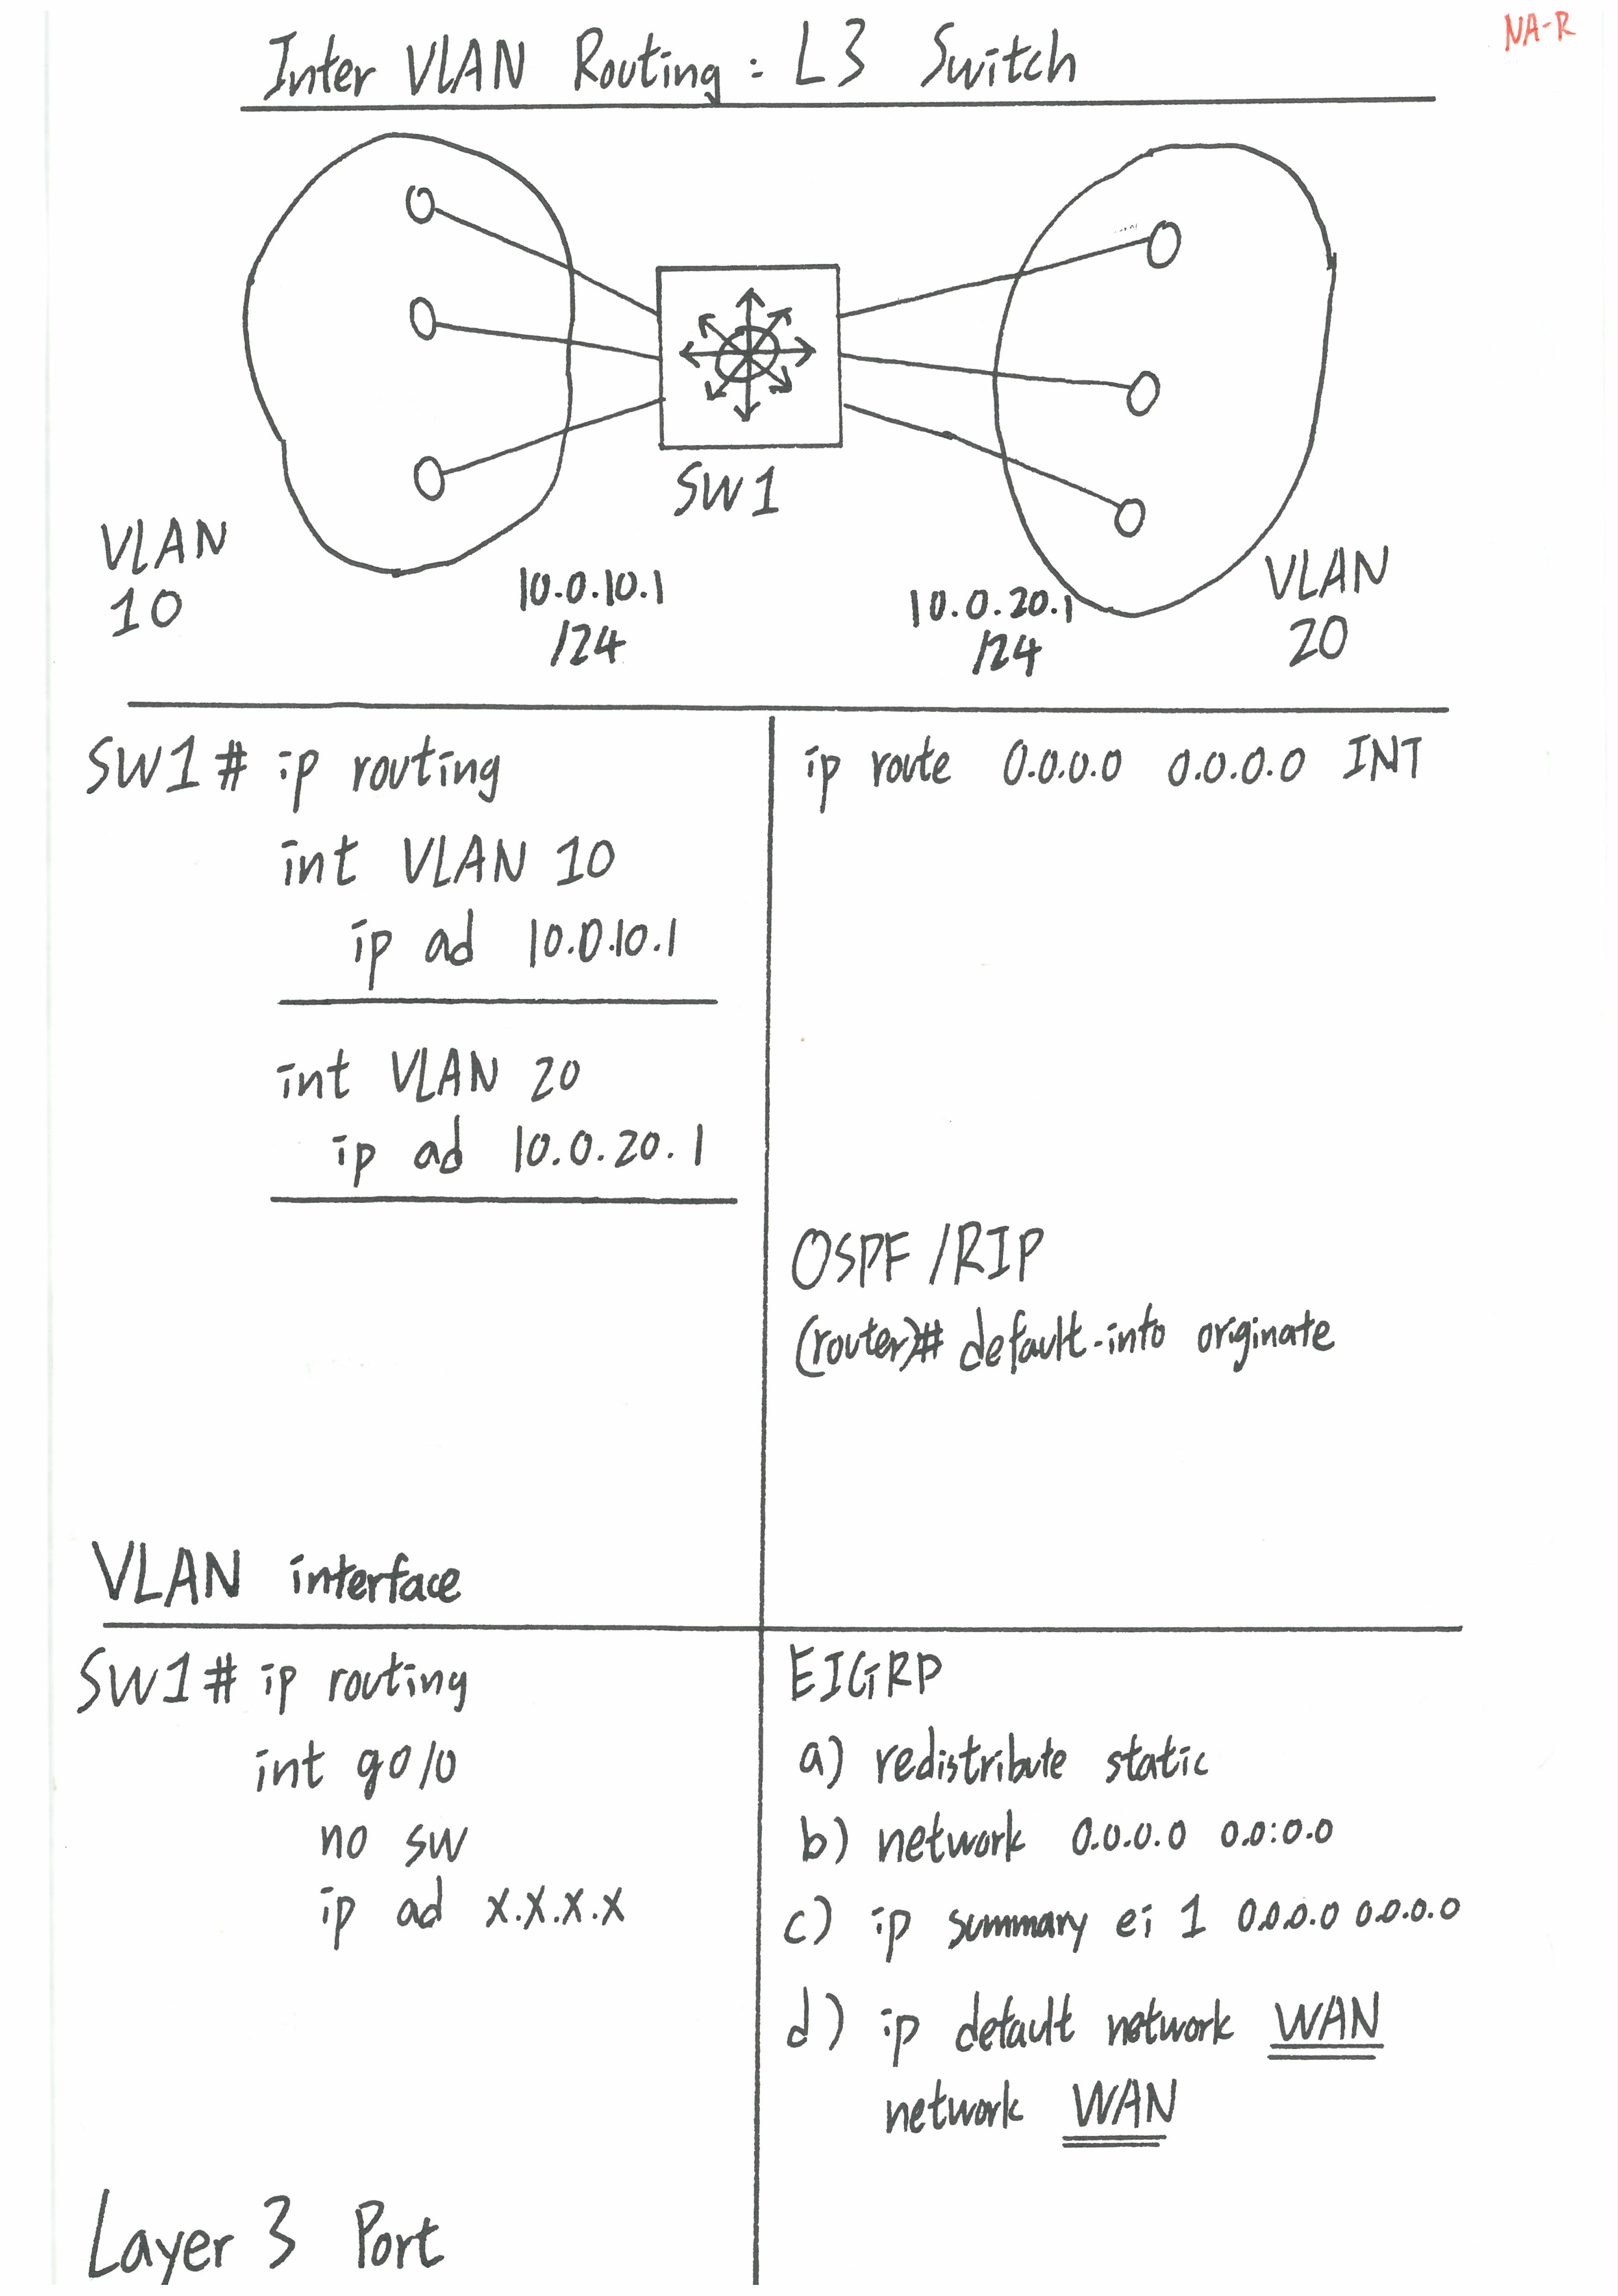 NA-R
Inter VLAN Routing : L3 Switch
SW1
VLAN
10
10.0.10.1
/24
10.0.20.1
/24
VLAN
20
SW1# ip routing
int VLAN 10
ip ad 10.0.10.1
int VLAN 20
ip ad 10.0.20.1
VLAN interface
ip route 0.0.0.0 0.0.0.0 INT
OSPF/RIP
(router)# default-into originate
SW1# ip routing
int g0/0
no sw
ip ad x.x.x.x
Layer 3 Port
EIGRP
a) redistribute static
b) network 0.0.0.0 0.0:0.0
c) ip summary ei 1 0.0.0.0 0.0.0.0
d) ip default network WAN
network WAN